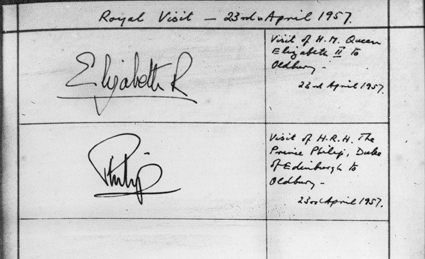 Royal Visit — 23rd April 1957.
Elizabeth R
Visit of H.M. Queen
Elizabeth II to
Oldbury
23rd April 1957.
Philip
Visit of H.R.H. The
Prince Philip, Duke
of Edinburgh to
Oldbury —
23rd April 1957.